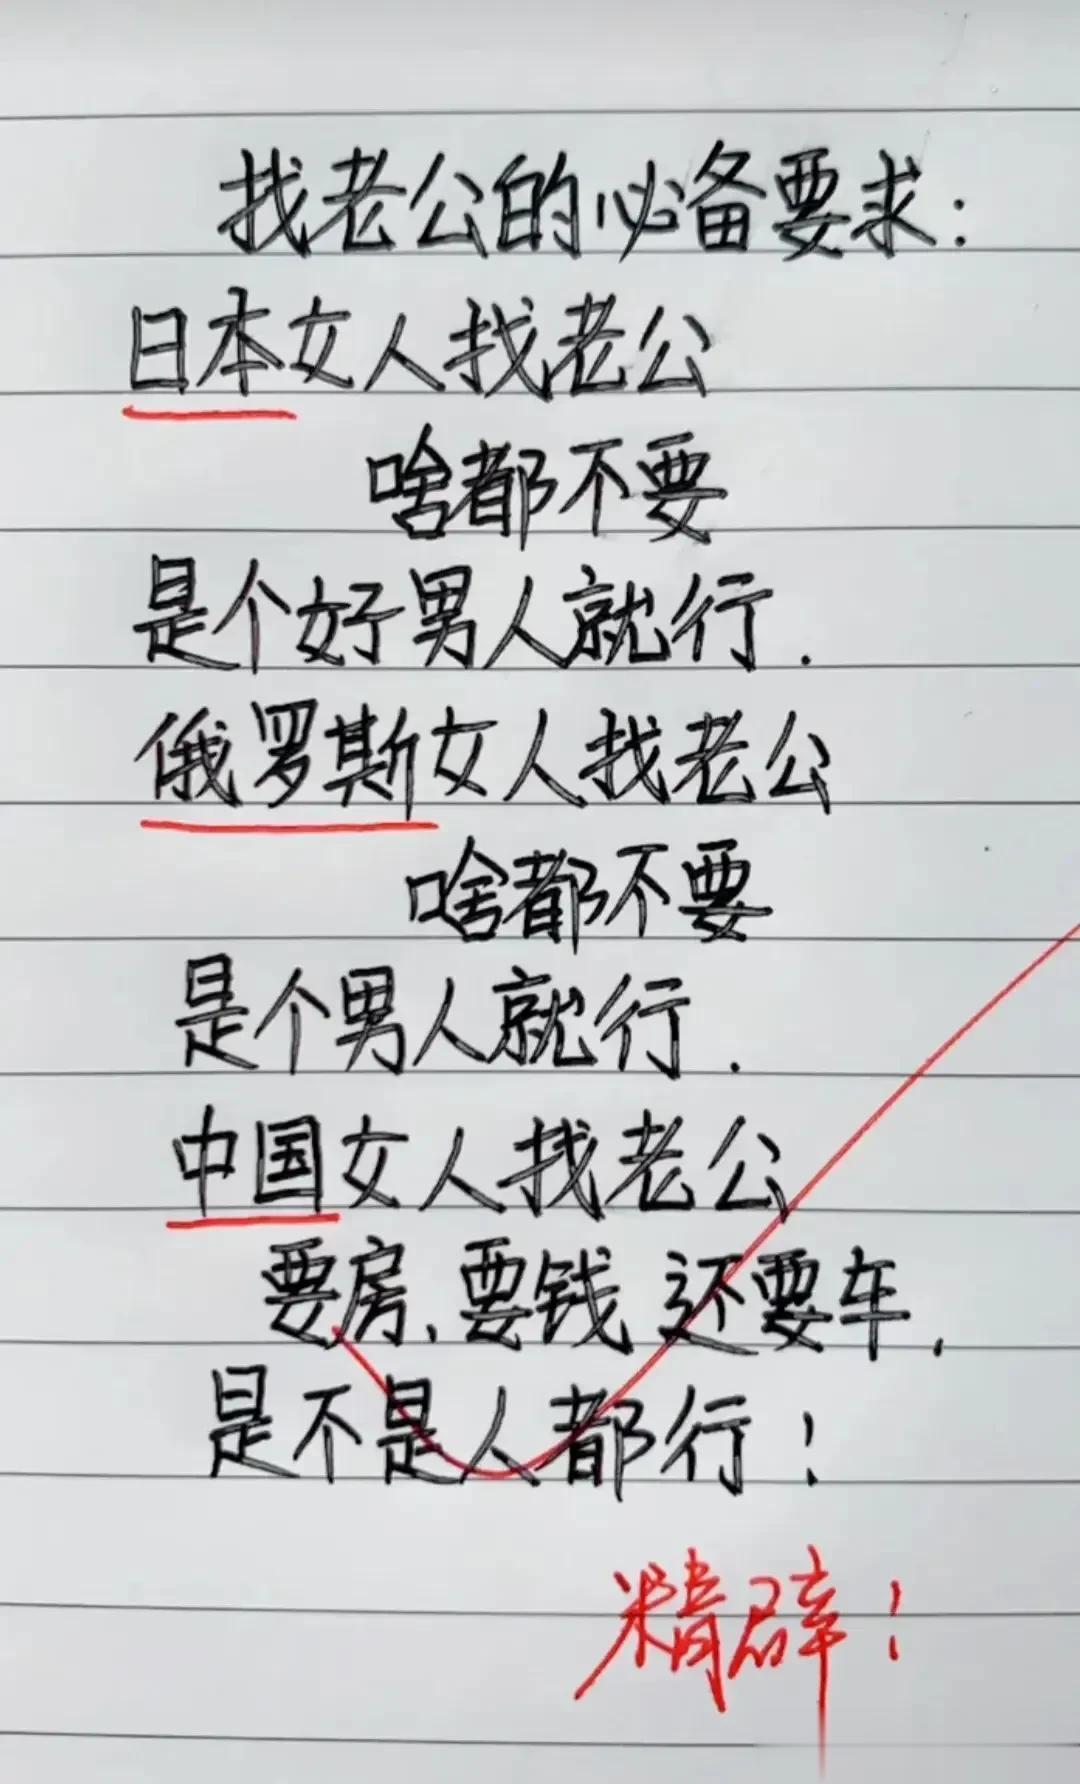 找老公的必备要求:
日本女人找老公
啥都不要
是个好男人就行.
俄罗斯女人找老公
啥都不要
是个男人就行.
中国女人找老公
要房、要钱 还要车.
是不是人都行!
精辟!